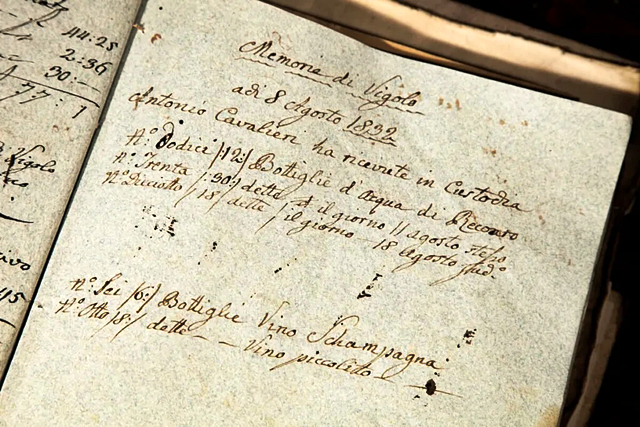 44:25
2:36
30:-
77:1
Vigolo
45
Memorie di Vigolo
adi 8 Agosto 1832
Antonio Cavalieri ha ricevute in Custodia
N.º Dodici /:12:/ Bottiglie d'Acqua di Recoaro
N.º Trenta /:30:/ dette il giorno 11 agosto stesso
N.º Diciotto /18/ dette / il giorno - 18 agosto sud.º
N.º Sei /6:/ Bottiglie Vino Schampagna
N.º Otto /8:/ dette - - Vino piccolitto